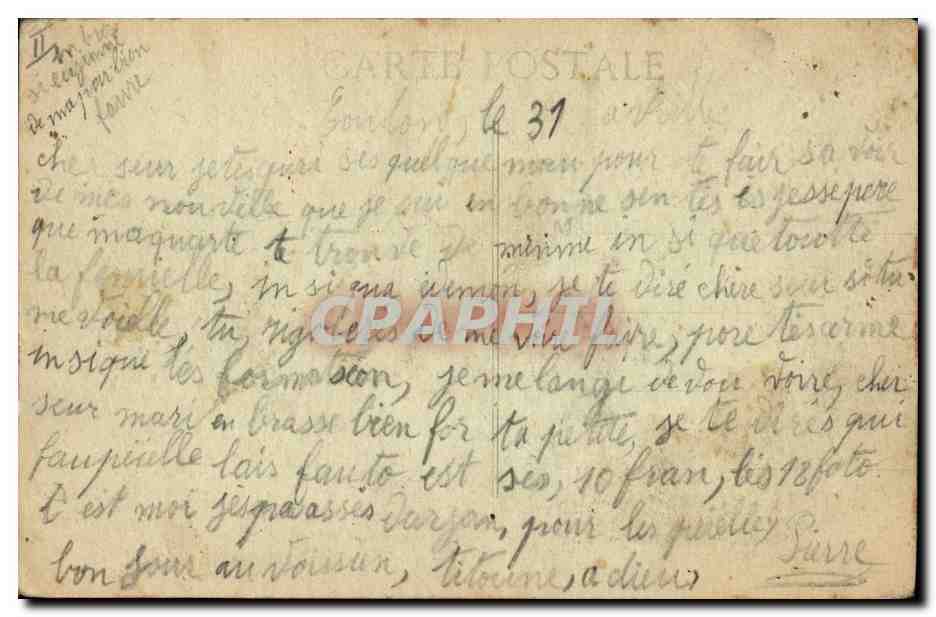 II
de ma par bien
faure
CARTE POSTALE
Toulon, le 31
cher seur je ses quelque mau pour te fair savoir
de mes nouvelle que je sui en bonne sentés es jessepere
que maquarte te trouve de mèime in si que toutte
la femielle, in si qua idemon, je te diré chère seur si tu
me voielle, tu rigoleres de me voir faire, pore tes arme
in si que les formation, je me langi de vou voire, cher
seur mari en brasse bien for ta petite, je te dirés qui
faupeielle lais fauto est ses, 10 fran, les 12 foto
c est moi jes pa assés darzan, pour les peielle,
bon jour au voissien, titoune, a dieu, Pierre
CPAPHIL